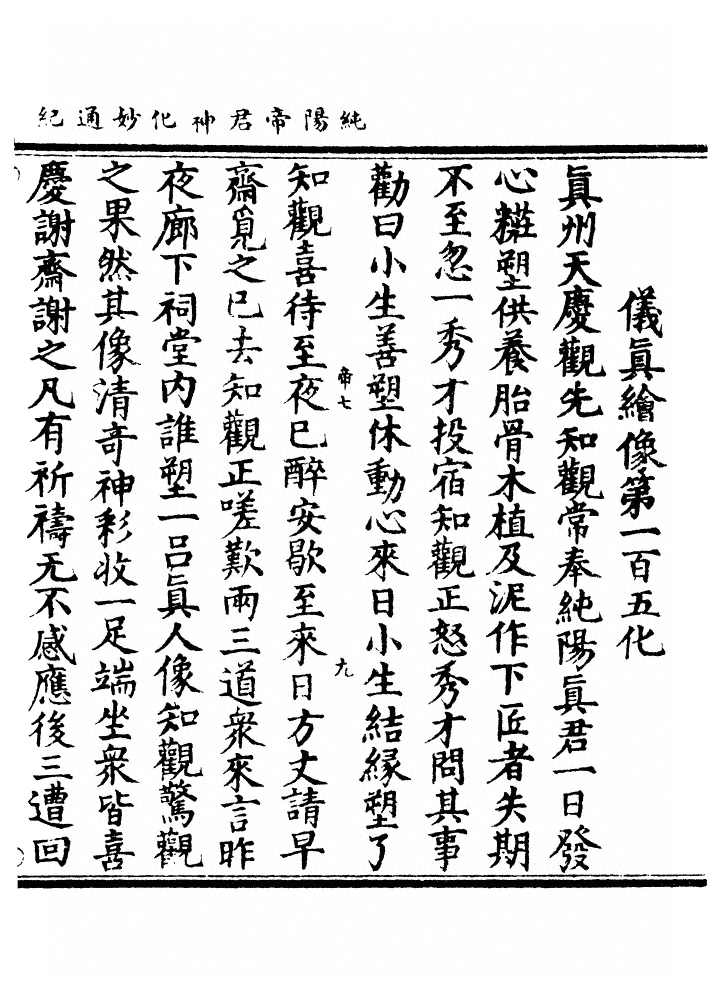 純陽帝君神化妙通紀
儀真繪像第一百五化
真州天慶觀先知觀常奉純陽真君一日發
心糚塑供養胎骨木植及泥作下匠者失期
不至忽一秀才投宿知觀正怒秀才問其事
勸曰小生善塑休動心來日小生結緣塑了
帝七
九
知觀喜待至夜已醉安歇至來日方丈請早
齋覓之已去知觀正嗟歎兩三道衆來言昨
夜廊下祠堂內誰塑一呂真人像知觀驚觀
之果然其像清奇神彩收一足端坐衆皆喜
慶謝齋謝之凡有祈禱无不感應後三遭回